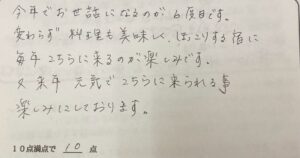 今年でお世話になるのが6度目です。
変わらず料理も美味しく、ほっこりする宿に
毎年こちらに来るのが楽しみです。
又来年元気でこちらに来られる事
楽しみにしております。
10点満点で 10 点